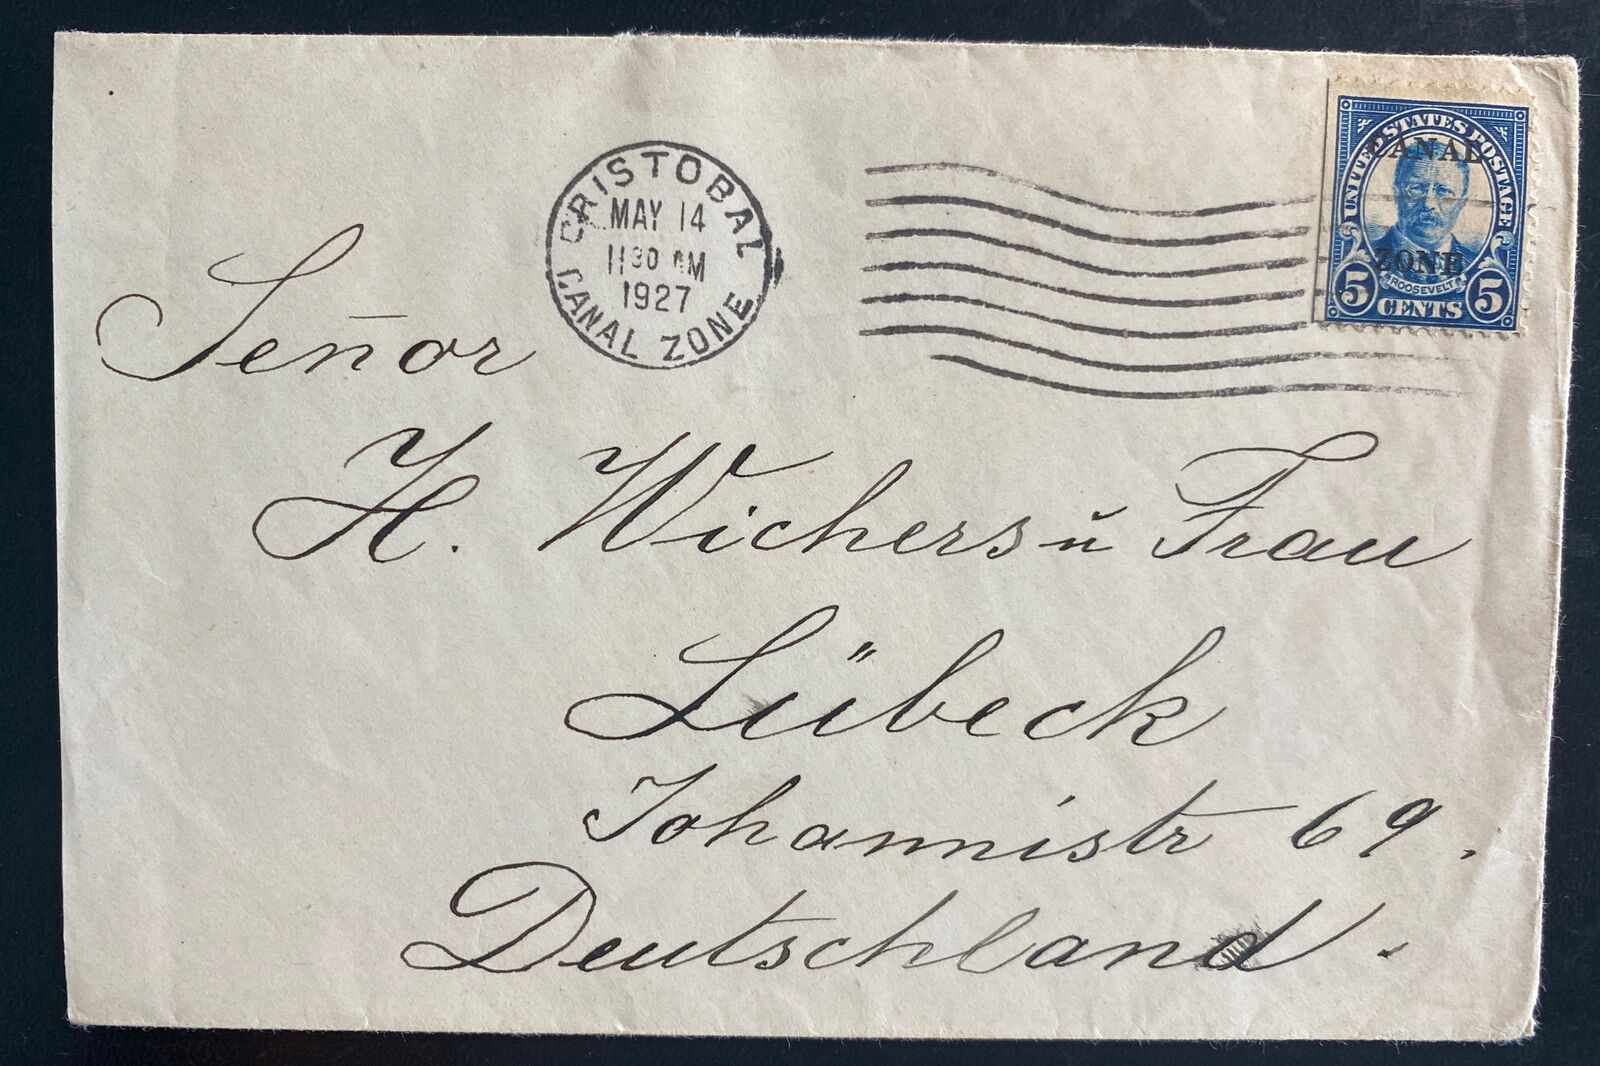 CRISTOBAL
MAY 14
11 30 AM
1927
CANAL ZONE
UNITED STATES POSTAGE
CANAL
ZONE
ROOSEVELT
5 CENTS 5
Señor
H. Wichers ŭ Frau
Lübeck
Johannistr 69.
Deutschland.